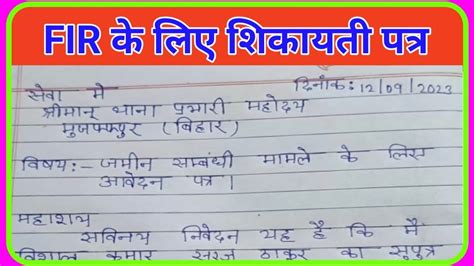 FIR के लिए शिकायती पत्र
दिनांक: 12/09/2023
सेवा में
श्रीमान् थाना प्रभारी महोदय
मुजफ्फरपुर (बिहार)
विषय:- जमीन सम्बंधी मामले के लिए
आवेदन पत्र।
महाशय
सविनय निवेदन यह है कि मैं
विशाल कुमार सूरज ठाकुर का सुपुत्र